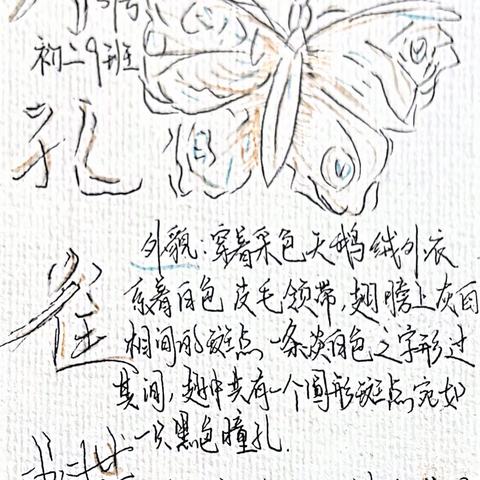 初二9班
孔
雀
外貌:穿着采色天鹅绒外衣
系着白色皮毛领带,翅膀上灰白
相间的斑点,一条淡白色之字形过
其间,翅中共有一个圆形斑点,宛如
一只黑色瞳孔.